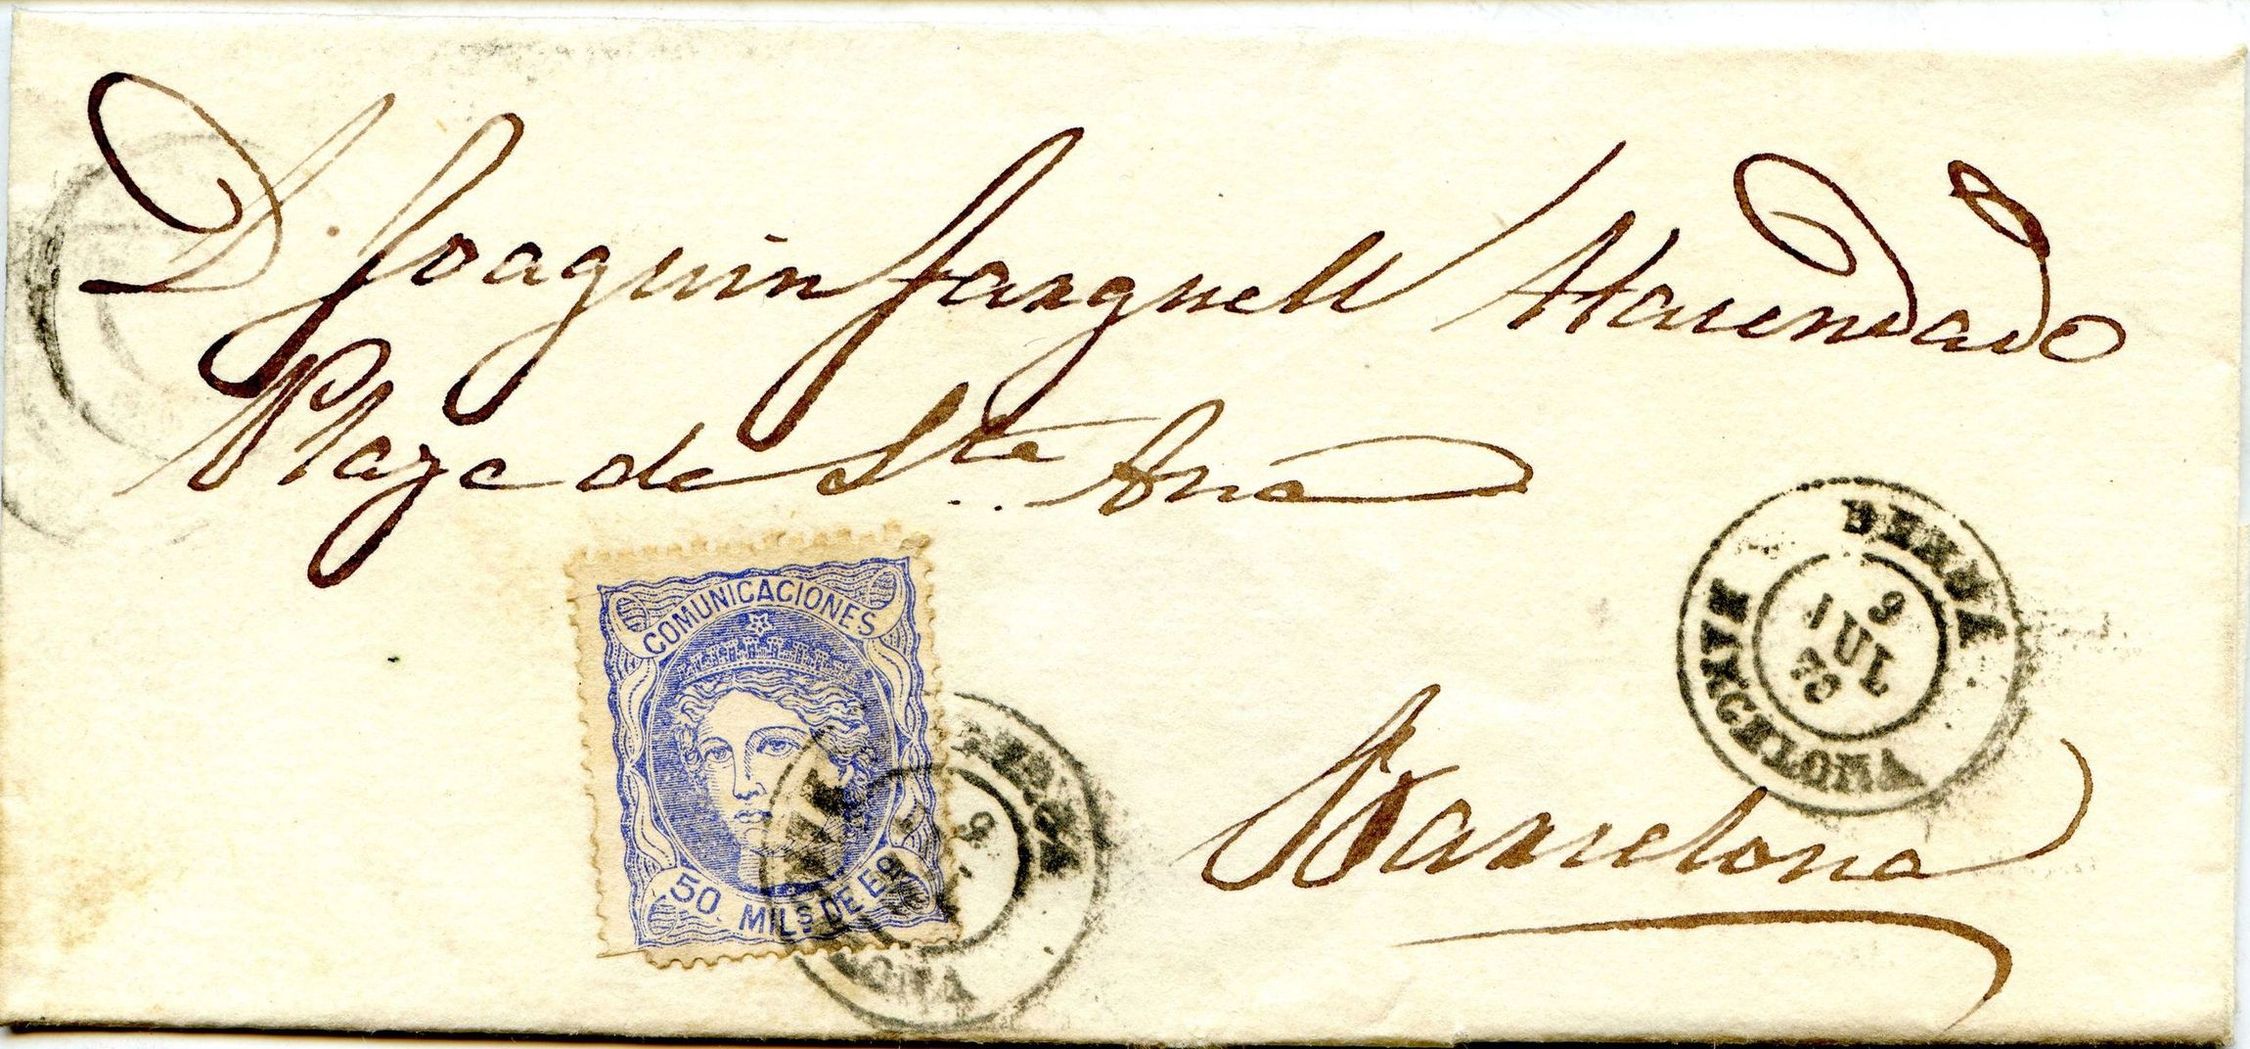 D. Joaquin Farguell Hacendado
Plaza de Sta. Ana
COMUNICACIONES
50 MILS DE E
9
BERGA
9
JUL
BARCELONA
Barcelona